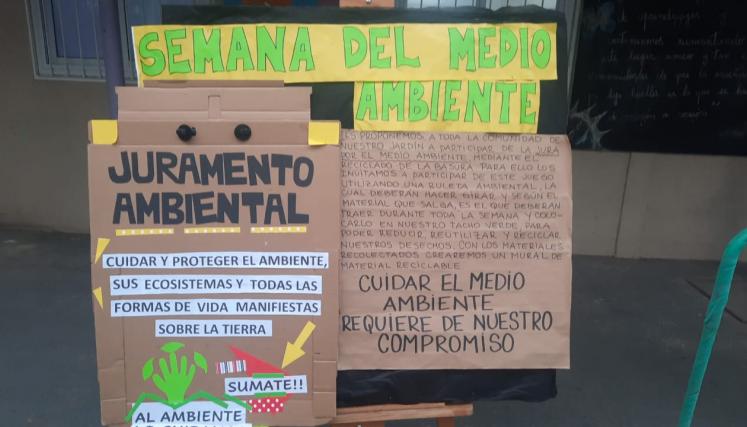 SEMANA DEL MEDIO
AMBIENTE
JURAMENTO
AMBIENTAL
CUIDAR Y PROTEGER EL AMBIENTE,
SUS ECOSISTEMAS Y TODAS LAS
FORMAS DE VIDA MANIFIESTAS
SOBRE LA TIERRA
SUMATE!!
AL AMBIENTE
LES PROPONEMOS A TODA LA COMUNIDAD DE
NUESTRO JARDÍN A PARTICIPAR DE LA JURA
POR EL MEDIO AMBIENTE, MEDIANTE EL
RECICLADO DE LA BASURA. PARA ELLO LOS
INVITAMOS A PARTICIPAR DE ESTE JUEGO
UTILIZANDO UNA RULETA AMBIENTAL, LA
CUAL DEBERÁN HACER GIRAR Y SEGÚN EL
MATERIAL QUE SALGA, ES EL QUE DEBERÁN
TRAER DURANTE TODA LA SEMANA Y COLO-
CARLO EN NUESTRO TACHO VERDE, PARA
PODER REDUCIR, REUTILIZAR Y RECICLAR
NUESTROS DESECHOS. CON LOS MATERIALES
RECOLECTADOS CREAREMOS UN MURAL DE
MATERIAL RECICLABLE
CUIDAR EL MEDIO
AMBIENTE
REQUIERE DE NUESTRO
COMPROMISO